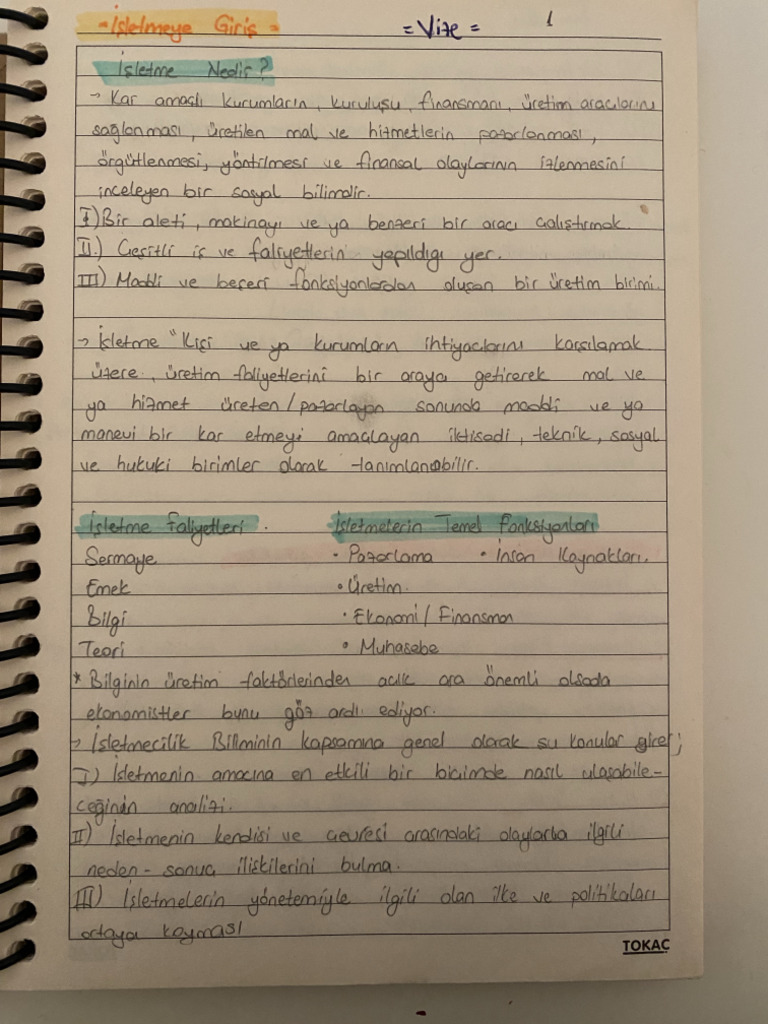 - İşletmeye Giriş - = Vize = 1
İşletme Nedir?
→ Kar amaçlı kurumların, kuruluşu, finansmanı, üretim araçlarını
sağlanması, üretilen mal ve hizmetlerin pazarlanması,
örgütlenmesi, yöntilmesi ve finansal olaylarının izlenmesini
inceleyen bir sosyal bilimdir.
I) Bir aleti, makinayı ve ya benzeri bir aracı çalıştırmak.
II.) Çeşitli iş ve faliyetlerin yapıldığı yer.
III) Maddi ve beşeri fonksiyonlardan oluşan bir üretim birimi.
→ İşletme "Kişi ve ya kurumların ihtiyaçlarını karşılamak
üzere, üretim faliyetlerini bir araya getirerek mal ve
ya hizmet üreten/pazarlayan sonunda maddi ve ya
manevi bir kar etmeyi amaçlayan iktisadi, teknik, sosyal
ve hukuki birimler olarak tanımlanabilir.
İşletme Faliyetleri. İşletmelerin Temel Fonksiyonları
Sermaye • Pazarlama • İnsan Kaynakları.
Emek • Üretim.
Bilgi • Ekonomi / Finansman
Teori • Muhasebe
* Bilginin üretim faktörlerinden açık ara önemli olsada
ekonomistler bunu göz ardı ediyor.
→ İşletmecilik Biliminin kapsamına genel olarak şu konular girer;
I) İşletmenin amacına en etkili bir biçimde nasıl ulaşabile-
ceğinin analizi.
II) İşletmenin kendisi ve çevresi arasındaki olaylarla ilgili
neden - sonuç ilişkilerini bulma.
III) İşletmelerin yönetemiyle ilgili olan ilke ve politikaları
ortaya koyması
TOKAÇ